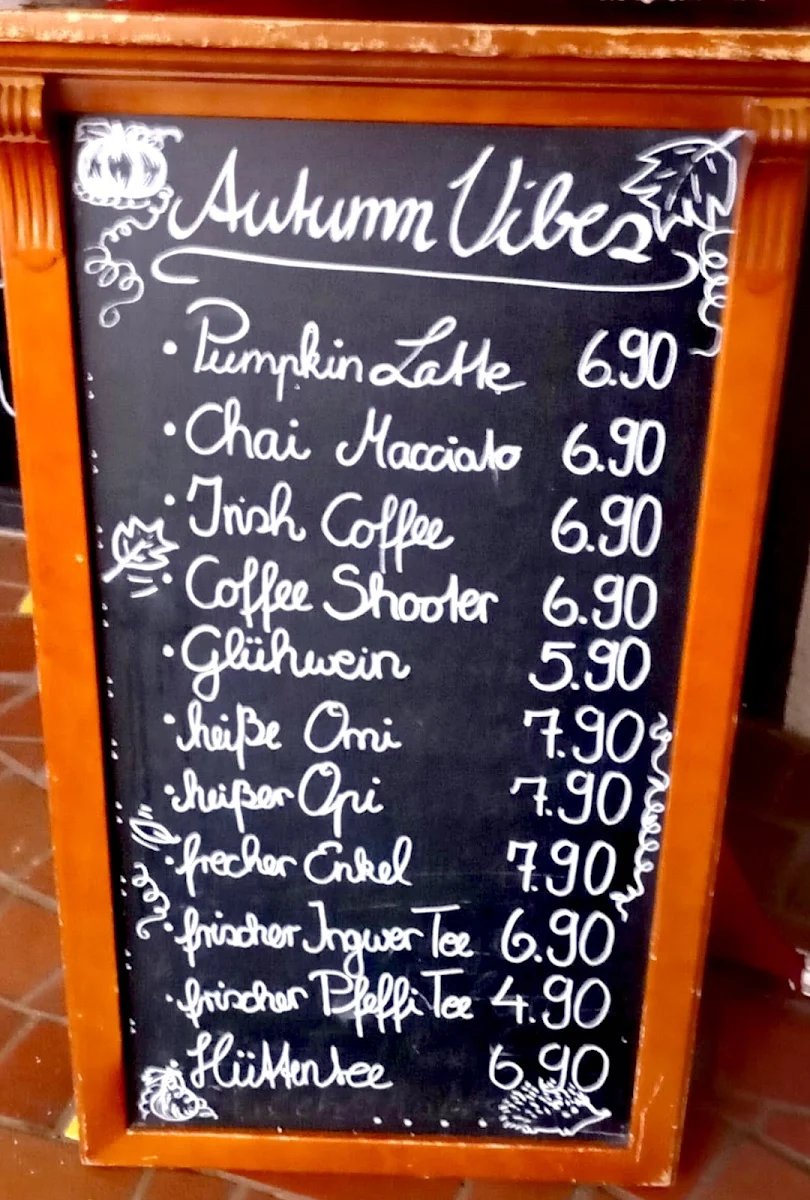 Autumn Vibes
• Pumpkin Latte 6.90
• Chai Macciato 6.90
• Irish Coffee 6.90
• Coffee Shooter 6.90
• Glühwein 5.90
• heiße Omi 7.90
• heißer Opi 7.90
• frecher Enkel 7.90
• frischer Ingwer Tee 6.90
• frischer Pfeffi Tee 4.90
• Hüttentee 6.90